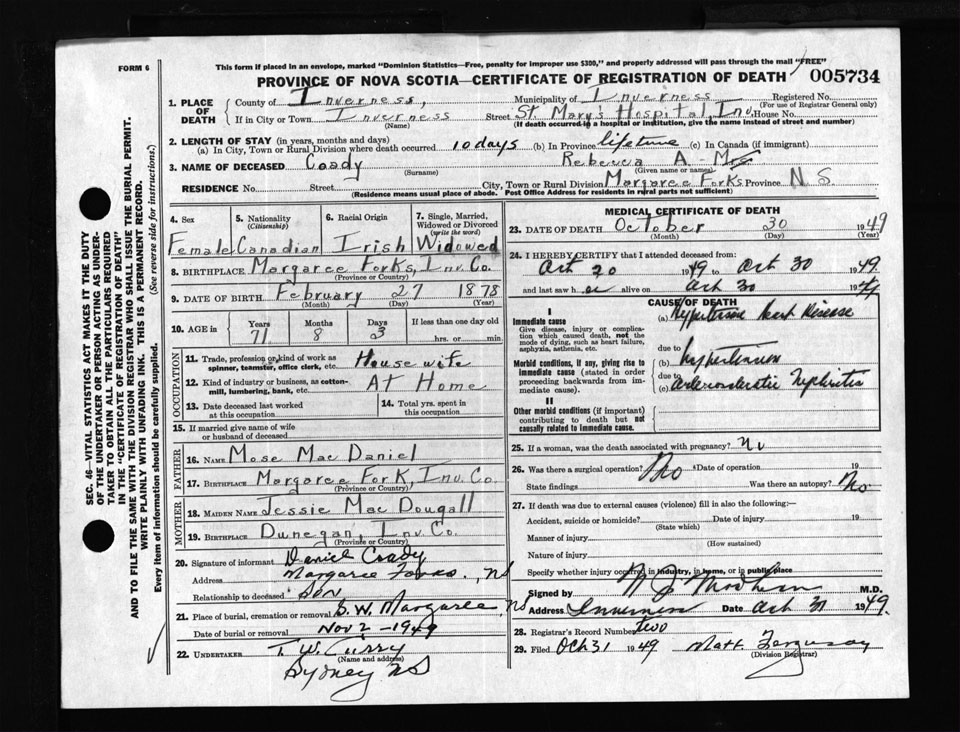 FORM 6
This form if placed in an envelope, marked "Dominion Statistics—Free, penalty for improper use $300," and properly addressed will pass through the mail "FREE"
PROVINCE OF NOVA SCOTIA—CERTIFICATE OF REGISTRATION OF DEATH
005734
1. PLACE OF DEATH { County of Inverness, Municipality of Inverness Registered No.
(For use of Registrar General only)
If in City or Town Inverness Street St. Mary's Hospital, Inv. House No.
(Name) (If death occurred in a hospital or institution, give the name instead of street and number)
2. LENGTH OF STAY (in years, months and days)
(a) In City, Town or Rural Division where death occurred 10 days (b) In Province lifetime (c) In Canada (if immigrant)
3. NAME OF DECEASED Coady Rebecca A.
(Surname) (Given name or names)
RESIDENCE No. Street City, Town or Rural Division Margaree Forks Province N S
(Residence means usual place of abode. Post Office Address for residents in rural parts not sufficient)
4. Sex Female
5. Nationality (Citizenship) Canadian
6. Racial Origin Irish
7. Single, Married, Widowed or Divorced (write the word) Widowed
8. BIRTHPLACE Margaree Forks, Inv. Co.
(Province or Country)
9. DATE OF BIRTH February 27 1878
(Month) (Day) (Year)
10. AGE in Years 71 Months 8 Days 3 If less than one day
hrs. or min.
OCCUPATION
11. Trade, profession or kind of work as spinner, teamster, office clerk, etc. House wife
12. Kind of industry or business, as cotton-mill, lumbering, bank, etc. At Home
13. Date deceased last worked at this occupation
14. Total yrs. spent in this occupation
15. If married give name of wife or husband of deceased
FATHER
16. NAME Mose MacDaniel
17. BIRTHPLACE Margaree Fork, Inv. Co.
(Province or Country)
MOTHER
18. MAIDEN NAME Jessie MacDougall
19. BIRTHPLACE Dunegan, Inv. Co.
(Province or Country)
20. Signature of informant Daniel Coady
Address Margaree Forks, NS
Relationship to deceased son
21. Place of burial, cremation or removal S. W. Margaree, NS
Date of burial or removal Nov 2 - 1949
22. UNDERTAKER T. W. Curry
(Name and address)
Sydney NS
MEDICAL CERTIFICATE OF DEATH
23. DATE OF DEATH October 30 1949
(Month) (Day) (Year)
24. I HEREBY CERTIFY that I attended deceased from:
Oct 20 1949 to Oct 30 1949
and last saw her alive on Oct 30 1949
CAUSE OF DEATH
I
Immediate cause (a) Hypertensive heart Disease
Give disease, injury or complication which caused death, not the mode of dying, such as heart failure, asphyxia, asthenia, etc.
due to
Morbid conditions, if any, giving rise to immediate cause (stated in order proceeding backwards from immediate cause).
(b) hypertension
due to
(c) arteriosclerotic Nephritis
II
Other morbid conditions (if important) contributing to death but not causally related to immediate cause.
25. If a woman, was the death associated with pregnancy? No
26. Was there a surgical operation? No Date of operation 19
State findings Was there an autopsy? No
27. If death was due to external causes (violence) fill in also the following:—
Accident, suicide or homicide? Date of injury 19
(State which)
Manner of injury
(How sustained)
Nature of injury
Specify whether injury occurred in industry, in home, or in public place
Signed by M.D.
Address Inverness Date Oct 31 1949.
28. Registrar's Record Number two
29. Filed Oct 31 1949 Matt. Ferguson
(Division Registrar)
SEC. 46—VITAL STATISTICS ACT MAKES IT THE DUTY
OF THE UNDERTAKER OR PERSON ACTING AS UNDER-
TAKER TO OBTAIN ALL THE PARTICULARS REQUIRED
IN THE "CERTIFICATE OF REGISTRATION OF DEATH"
AND TO FILE THE SAME WITH THE DIVISION REGISTRAR WHO SHALL ISSUE THE BURIAL PERMIT.
WRITE PLAINLY WITH UNFADING INK. THIS IS A PERMANENT RECORD.
Every item of information should be carefully supplied. (See reverse side for instructions.)